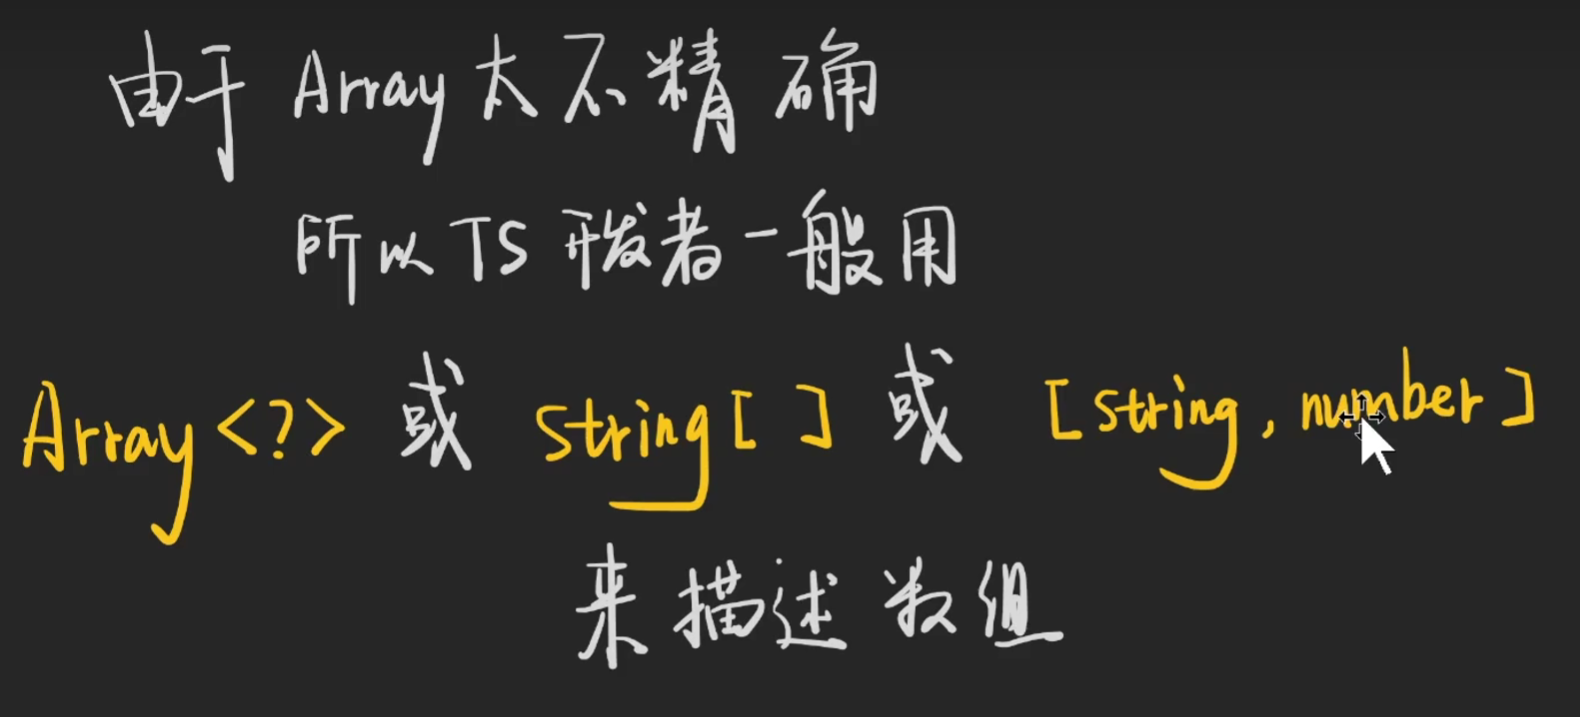 由于 Array 太不精确
所以 TS 开发者一般用
Array <?> 或 string [ ] 或 [ string , number ]
来描述数组